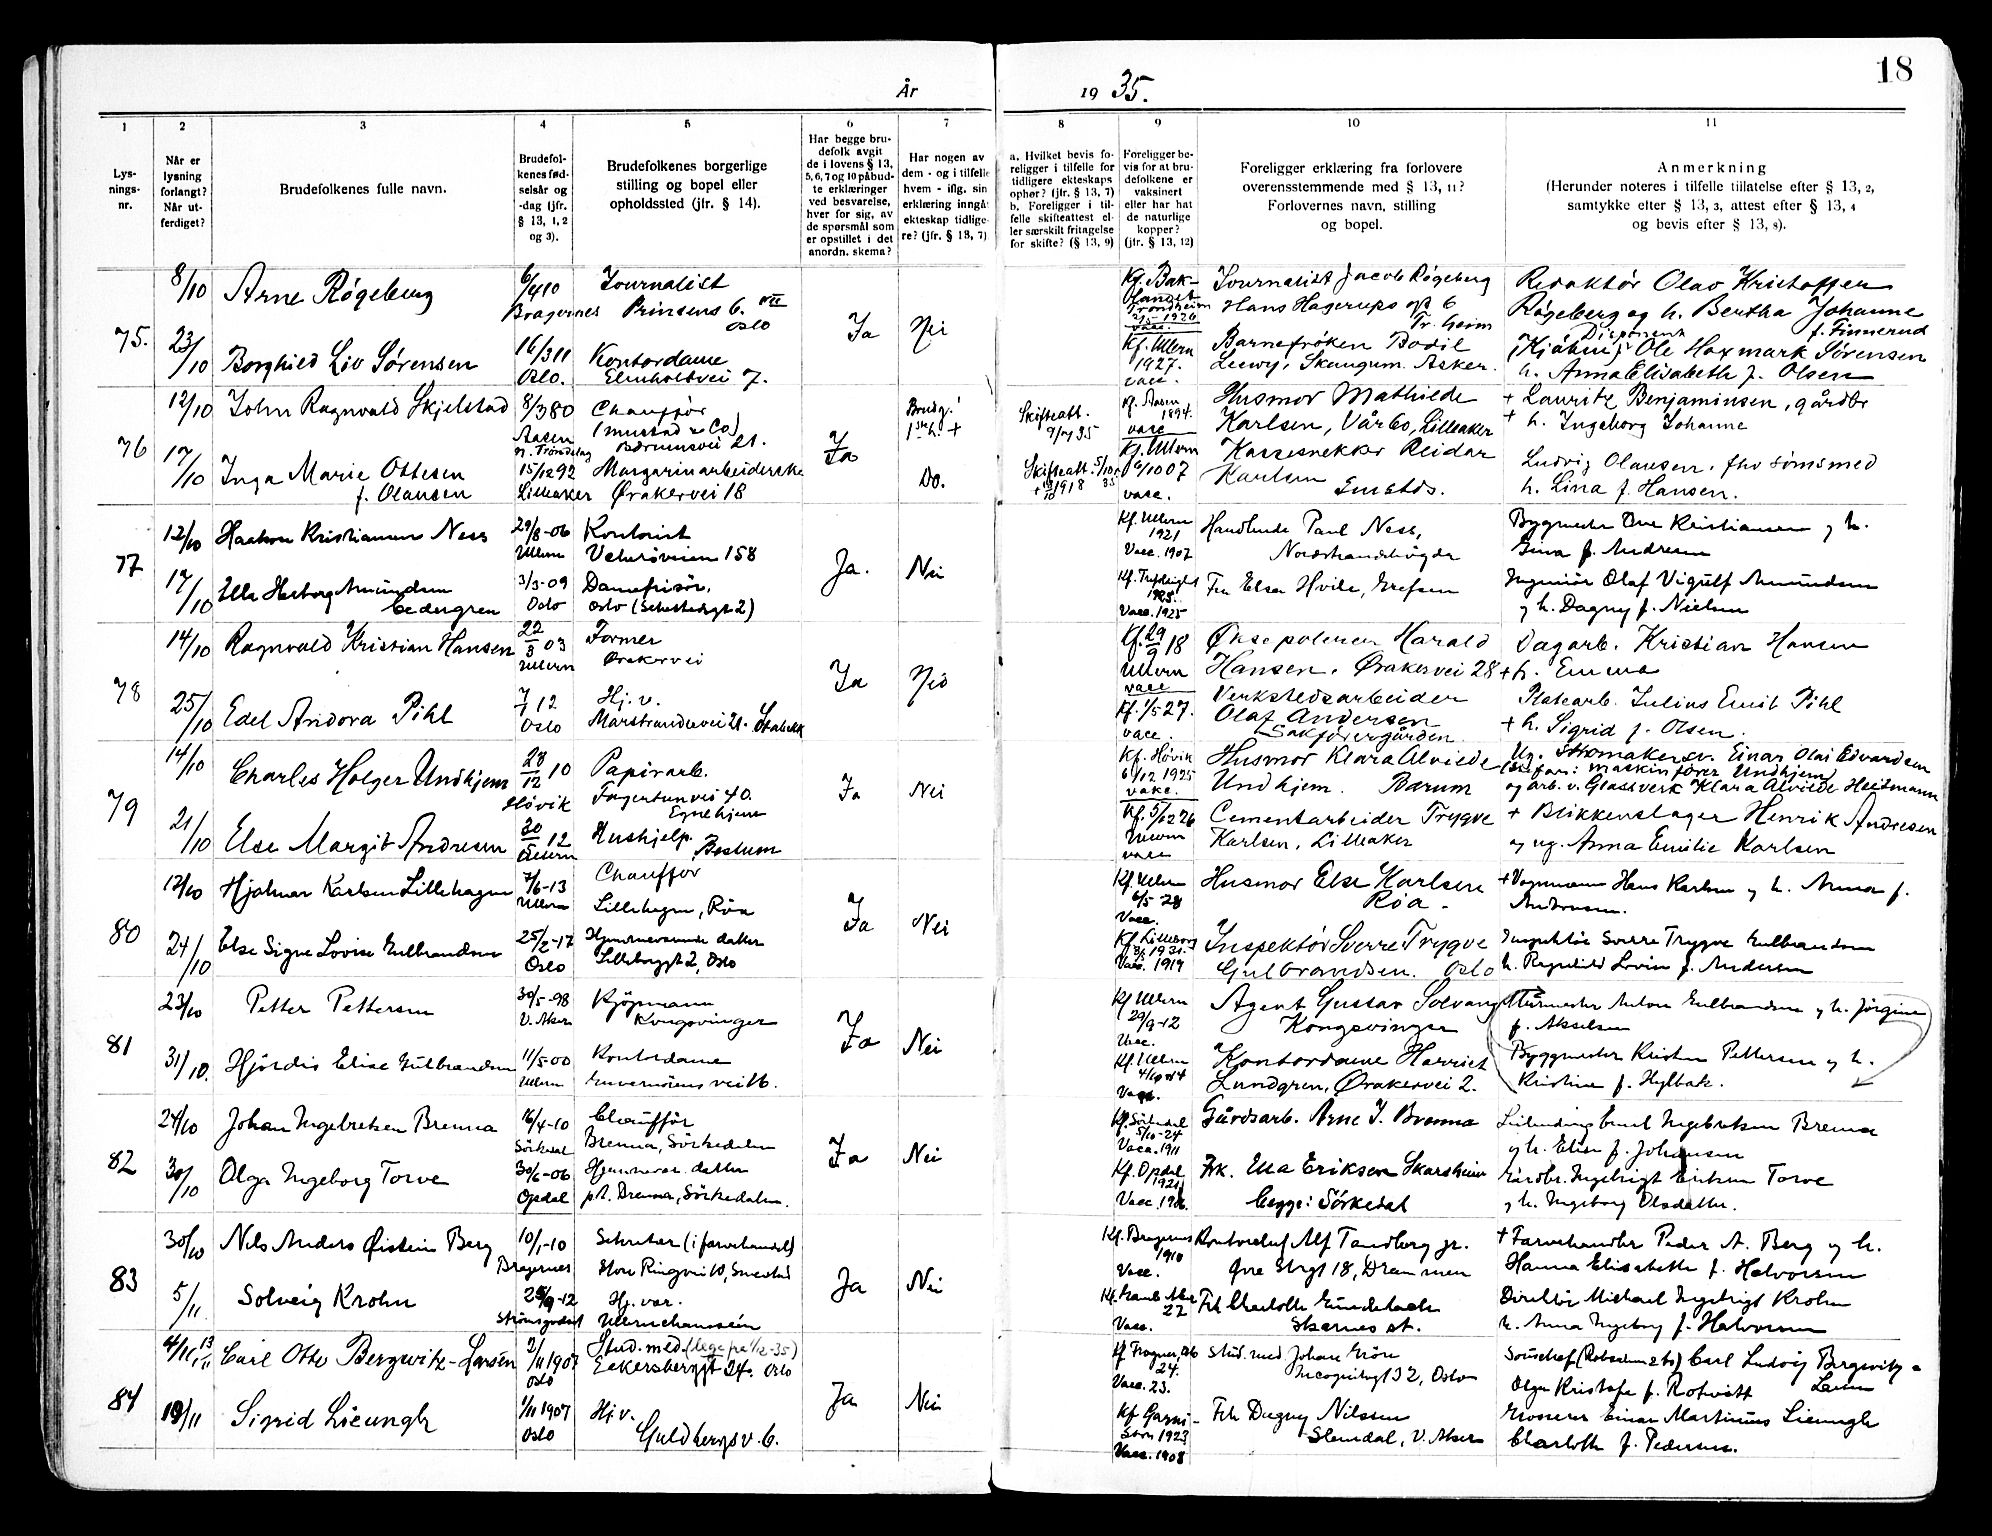 18
År 1935.
1
2
3
4
5
6
7
8
9
10
11
Lys-
nings-
nr.
Når er
lysning
forlangt?
Når ut-
ferdiget?
Brudefolkenes fulle navn.
Brudefol-
kenes fød-
selsår og
-dag (jfr.
§ 13, 1, 2
og 3).
Brudefolkenes borgerlige
stilling og bopel eller
opholdssted (jfr. § 14).
Har begge bru-
defolk avgit
de i lovens § 13,
5, 6, 7 og 10 påbud-
te erklæringer
ved besvarelse,
hver for sig, av
de spørsmål som
er opstillet i det
anordn. skema?
Har nogen av
dem - og i tilfelle
hvem - iflg. sin
erklæring inngå
ekteskap tidlige-
re? (jfr. § 13, 7)
a. Hvilket bevis fo-
religger i tilfelle for
tidligere ekteskaps
ophør? (jfr. § 13, 7)
b. Foreligger i til-
felle skifteattest el-
ler særskilt fritagelse
for skifte? (§ 13, 9)
Foreligger be-
vis for at bru-
defolkene er
vaksinert
eller har hat
de naturlige
kopper?
(jfr. § 13, 12)
Foreligger erklæring fra forlovere
overensstemmende med § 13, 11?
Forlovernes navn, stilling
og bopel.
Anmerkning
(Herunder noteres i tilfelle tillatelse efter § 13, 2,
samtykke efter § 13, 3, attest efter § 13, 4
og bevis efter § 13, 8).
75.
8/10
Arne Røgeberg
6/4 10
Bragernes
Journalist
Prinsens g. VII
Oslo
Ja
Nei
Kf. Bak-
landet
Trondheim
1926
vacc.
Journalist Jacob Røgeberg
Hans Hagerups gt 6
Tr.heim
Redaktør Olav Kristoffer
Røgeberg og h. Bertha Johanne
f. Finnerud
23/10
Borghild Liv Sørensen
16/3 11
Oslo.
Kontordame
Elmholtvei 7.
Kf. Ullern
1927.
vacc.
Barnefrøken Bodil
Skaugum. Asker.
Disponent
(Kjøbm.) Ole Hoxmark Sørensen
h. Anna Elisabeth f. Olsen
76
12/10
John Ragnvald Skjelstad
8/3 80
Aasen
n. Trøndelag
Chauffør
(Mustad & Co)
Bærumsvei 21.
Ja
Brudg.
1ste h. +
Skifteatt.
9/7 35
Kf. Aasen,
1894.
vacc
Husmor Mathilde
Karlsen, Vårbo, Lilleaker
+ Lauritz Benjaminsen, gårdbr
+ h. Ingeborg Johanne
17/10
Inga Marie Ottesen
f. Olausen
15/12 92
Lilleaker
Margarinarbeiderske
Ørakervei 18
Do.
Skifteatt. 5/10 35
1918
Kf. Ullern
6/10 07
vacc.
Kassesnekker Reidar
Karlsen
Ensteds.
Ludvig Olausen, fhv sømsmed
h. Lina f. Hansen.
77
12/10
Haakon Kristiansen Ness
29/8-06
Ullern
Kontorist
Vækerøveien 158
Ja.
Nei
Kf. Ullern
1921
Vacc. 1907
Paul Ness,
Nordstrandshøgda
Byggmester Ove Kristiansen og h.
Gina f. Andresen
17/10
Ella Herborg Amundsen
Cedergren
3/3-09
Oslo
Damefrisør.
Oslo (Schestedsgt 2)
Kf. Trefoldigh.
1925.
Vacc. 1925
Fru Elsa Hvile, Grefsen
Ingeniør Olaf Vigulf Amundsen
og h. Dagny f. Nielsen
78
14/10
Ragnvald Kristian Hansen
22/3 03
Ullern
Former
Ørakervei
Ja
Nei
Kf. 29/9 18
Ullern
vacc
Øksepolerer Harald
Hansen. Ørakervei 28
Dagarb. Kristian Hansen
+ h. Emma
25/10
Edel Andora Pihl
7/1 12
Oslo
Hj. v.
Marstrandervei 21. Stabekk
Kf. 1/5 27.
vacc.
Verkstedsarbeider
Olaf Andersen
Sakførergården.
Platearb. Julius Emil Pihl
+ h. Sigrid f. Olsen.
79
14/10
Charles Holger Undhjem
28/12 10
Høvik
Papirarb.
Fagertunvei 40.
Egnehjem
Ja
Nei
Kf. Høvik
6/12 1925
vakc.
Husmor Klara Alvilde
Undhjem. Bærum
Ug. skomakersv. Einar Olai Edvardsen
(stefar: maskinfører Undhjem)
og arb. v. Glassverk Klara Alvilde Heitmann
21/10
Else Margit Andresen
30/ 12
Ullern
Hushjelp.
Bestum
Kf. 5/12 26
Ullern
vacc
Cementarbeider Trygve
Karlsen, Lilleaker
+ Blikkenslager Henrik Andresen
og ug. Anna Emilie Karlsen
80
12/10
Hjalmar Karlsen Lillehagen
7/6-13
Ullern
Chauffør
Lillehagen, Røa
Ja
Nei
Kf. Ullern
6/5-28
Vacc.
Husmor Else Karlsen
Røa.
+ Vognmann Hans Karlsen og h. Anna f.
Andresen.
24/10
Else Signe Lovise Gulbrandsen
25/2-17
Oslo
Hjemmeværende datter
Lilleborggt 2, Oslo
Kf. Lilleborg
1931.
Vacc. 1919
Inspektør Sverre Trygve
Gulbrandsen. Oslo
Inspektør Sverre Trygve Gulbrandsen
h. Ragnhild Lovise f. Andersen
81
23/10
Petter Pettersen
30/5-98
V. Aker
Kjøpmann
Kongsvinger
Ja
Nei
Kf Ullern
29/9-12
Vacc.
Agent Gustav Solvang
Kongsvinger
Murmester Anton Gulbrandsen og h. Jørgine
f. Akselsen
31/10.
Hjørdis Elise Gulbrandsen
11/5-00
Ullern
Kontordame
Kf. Ullern
4/10-14
Vacc.
Kontordame Harriet
Lundgren, Ørakervei 2.
Byggmester Kristen Pettersen og h.
Kristine f. Hylbak.
82
24/10
Johan Ingebretsen Brenna
16/4-10
Sørkedal
Chauffør
Brenna, Sørkedalen
Ja
Nei
Kf. Sørkedal
5/10-24
Vacc. 1911
Gårdsarb. Arne I. Brenna
Ingebretsen Brenna
og h. Elise f. Johansen
30/10
Olga Ingeborg Torve
30/6-06
Opdal
Hjemmevær. datter
p.t. Brenna, Sørkedalen.
Kf. Opdal
1921
Vacc. 1906.
Frk. Ella Eriksen Skarsheim
begge: Sørkedal
Gårdbr. Ingebrigt Eriksen Torve
og h. Ingeborg Olsdatter.
83
30/10
Nils Anders Øistein Berg
10/1-10
Bragernes
Sekretær (i farvehandel)
Store Ringvei 10, Smestad
Ja
Nei
Kf. Bragernes
1910
Vacc.
Kontorchef Alf Tandberg jr.
Øvre Strgt 18, Drammen
+ Farvehandler Peder A. Berg og h.
Hanna Elisabeth f. Halvorsen
5/11.
Solveig Krohn
25/9-12
Strømsgodset
Hj. vær.
Ullernchausséen
Kf. Gamle Aker
27
Vacc.
Frk Charlotte Gundersen
Skarnes st.
Direktør Michael Ingebrigt Krohn
h. Anna Ingeborg f. Halvorsen
84
4/11, 13/11
Carl Otto Bergwitz-Larsen
2/11 1907
Oslo
Stud. med. (læge fra 1/12-35)
Eckersbergsgt 24. Oslo
Ja
Nei
Kf. Frogner, Oslo
24.
Vacc. 23.
Stud. med Johan
Incognitogt 32, Oslo
Carl Ludvig Bergwitz-
Larsen
Olga Kristofa f. Rotvitt
19/11
Sigrid Lieungh
1/11 1907
Oslo
Hj v.
Guldbergs v. 6.
Kf. Garni-
son 1923
Vacc. 1908
Frk Dagny Nilssen
Slemdal, V. Aker
Grosserer Einar Martinius Lieungh
Charlotte f. Pedersen.